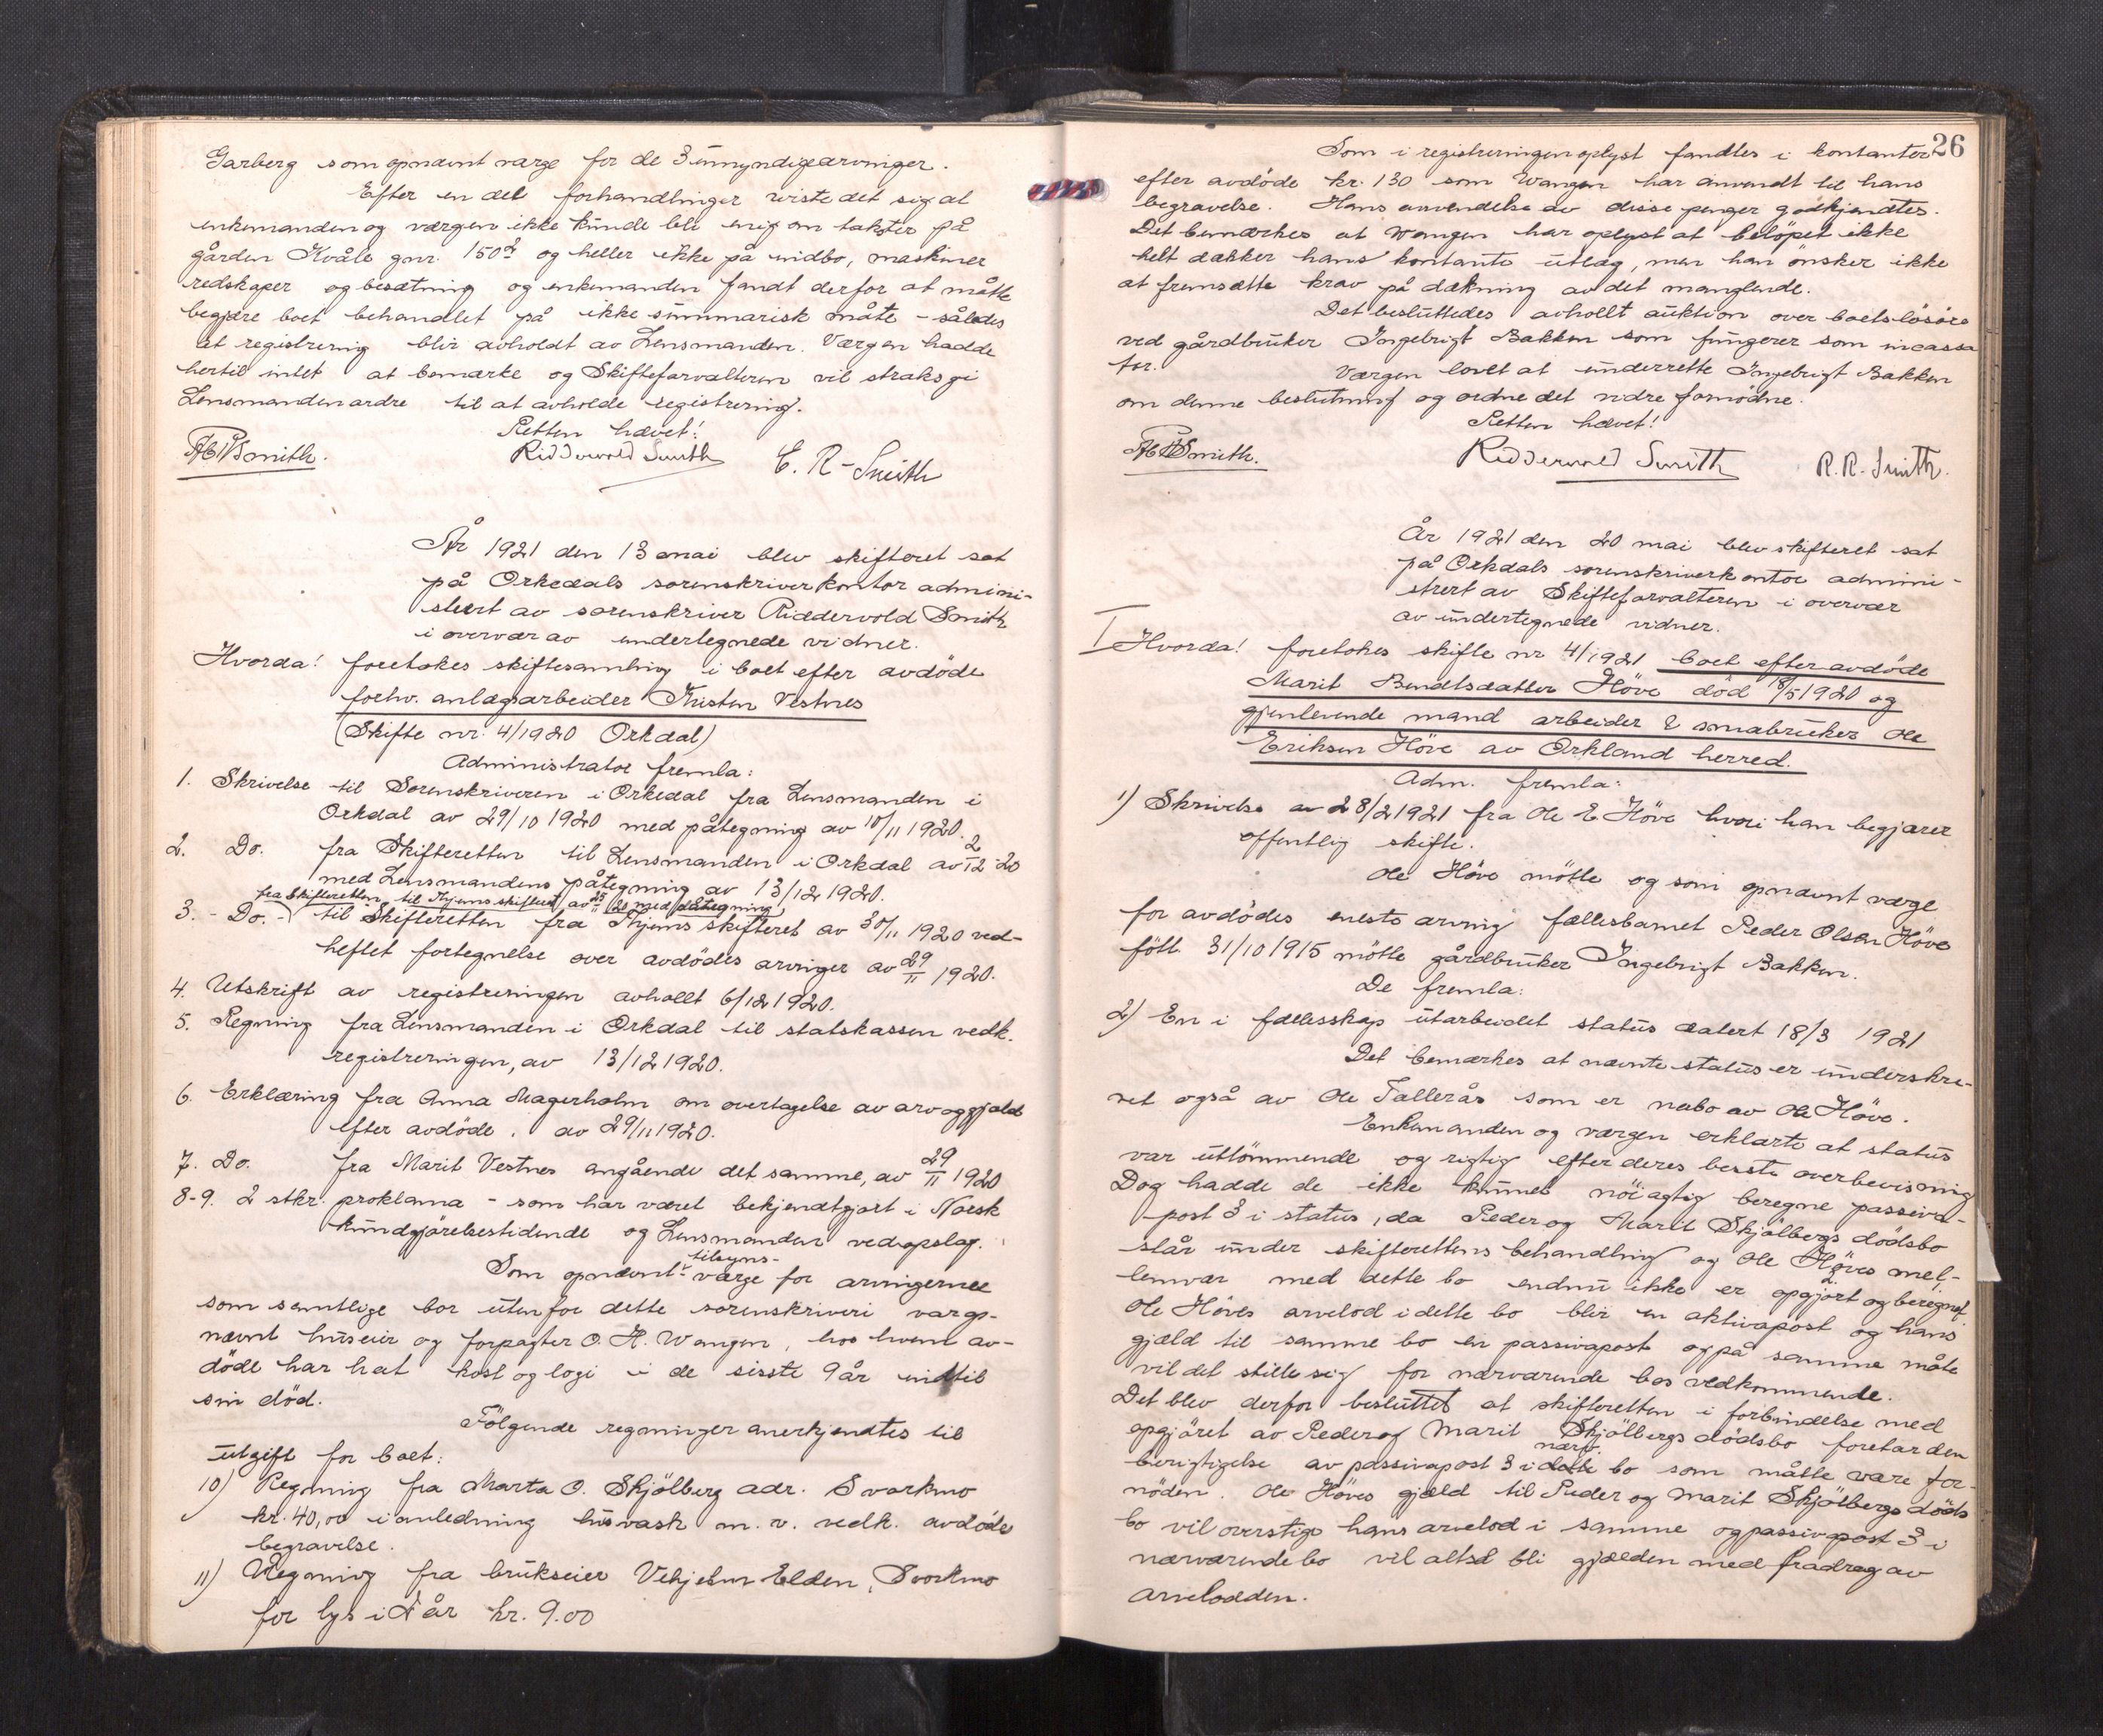 Garberg som opnævnt værge for de 3 umyndige arvinger.
Efter en del forhandlinger viste det sig at
enkemanden og værgen ikke kunde bli enig om takster på
gården Kvåle gnr. 150 og heller ikke på indbo, maskiner
redskaper og besætning og enkemanden fandt derfor at måtte
begjære boet behandlet på ikke summarisk måte - således
at registrering blir avholdt av Lensmanden. Værgen hadde
hertil intet at bemærke og Skifteforvalteren vil straks gi
Lensmanden ordre til at avholde registrering.
Retten hævet!
Smith. Riddervold Smith E. R-Smith
År 1921 den 13 mai blev skifteret sat
på Orkedals sorenskriverkontor admini-
strert av sorenskriver Riddervold Smith
i overvær av undertegnede vidner.
Hvorda! foretokes skiftesamling i boet efter avdöde
forhv. anlægsarbeider Kristen Vestnes
(Skifte nr. 4/1920 Orkdal)
Administrator fremla:
1. Skrivelse til Sorenskriveren i Orkedal fra Lensmanden i
Orkdal av 29/10 1920 med påtegning av 10/11 1920.
2. Do. fra Skifteretten til Lensmanden i Orkdal av 2/12 20
med Lensmandens påtegning av 13/12 1920.
fra Skifteretten til Hjems skifteret av 25/11 20 med påtegning
3. - Do. - til Skifteretten fra Hjems skifteret av 30/11 1920 ved-
heftet fortegnelse over avdödes arvinger av 29/11 1920.
4. Utskrift av registreringen avhollt 6/12 1920.
5. Regning fra Lensmanden i Orkdal til statskassen vedk.
registreringen, av 13/12 1920.
6. Erklæring fra Anna Magerholm om overtagelse av arv og gjæld
efter avdöde. av 29/11 1920.
7. Do. fra Marit Vestnes angående det samme, av 29/11 1920
8-9. 2 stkr. proklama - som har været bekjendtgjort i Norsk
kundgjörelsestidende og Lensmanden ved opslag.
tilsyns-
Som opnævnt værge for arvingerne
som samtlige bor utenfor dette sorenskriveri
nævnt huseier og forpagter O. H. Wangen, hos hvem av-
döde har hat kost og logi i de sisste 9 år indtil
sin död.
Fölgende regninger anerkjendtes til
utgift for boet:
10) Regning fra Marta O. Skjölberg adr. Svorkmo
kr. 40,00 i anledning husvask m. v. vedk. avdödes
begravelse.
11) Regning fra brukseier Elden, Svorkmo
for lys i år kr. 9.00
26
Som i registreringen oplyst fandtes i kontanter
efter avdöde kr. 130 som Wangen har anvendt til hans
begravelse. Hans anvendelse av disse penger godkjendtes.
Det bemærkes at Wangen har oplyst at belöpet ikke
helt dækker hans kontante utlæg, men han önsker ikke
at fremsætte krav på dækning av det manglende.
Det besluttedes avhollt auktion over boets lösöre
ved gårdbruker Ingebrigt Bakken som fungerer som incassa
tor. Værgen lovet at underrette Ingebrigt Bakken
om denne beslutning og ordne det vidre fornödne.
Retten hævet!
Smith. Riddervold Smith R. R. Smith.
År 1921 den 20 mai blev skifteret sat
på Orkdals sorenskriverkontor admini-
strert av Skifteforvalteren i overvær
av undertegnede vidner.
I Hvorda! foretokes skifte nr 4/1921 boet efter avdöde
Marit Bendtsdatter Höve död 18/5 1920 og
gjenlevende mand arbeider & småbruker Ole
Eriksen Höve av Orkland herred.
Adm. fremla:
1) Skrivelse av 28/2 1921 fra Ole E. Höve hvori han begjærer
offentlig skifte.
Ole Höve mötte og som opnævnt værge
for avdödes eneste arving fællesbarnet Peder Olsen Höve
född 31/10 1915 mötte gårdbruker Ingebrigt Bakken.
De fremla:
2) En i fællesskap utarbeidet status datert 18/3 1921
Det bemærkes at nævnte status er underskre-
vet også av Ole Tallerås som er nabo av Ole Höve.
Enkemanden og værgen erklærte at status
var uttömmende og rigtig efter deres besste overbevisning
Dog hadde de ikke kunnet nöiagtig beregne passiva-
post 3 i status, da Peder og Marit Skjölbergs dödsbo
står under skifterettens behandling og Ole Höves mel-
lemvær med dette bo endnu ikke er opgjort og beregnet.
Ole Höves arvelod i dette bo blir en aktivapost og hans
gjæld til samme bo en passivapost og på samme måte
vil det stille sig for nærværende bos vedkommende.
Det blev derfor besluttet at skifteretten i forbindelse med
opgjöret av Peder og Marit Skjölbergs dödsbo foretar den
nærv.
berigtigelse av passivapost 3 i dette bo som måtte være for-
nöden. Ole Höves gjæld til Peder og Marit Skjölbergs döds
bo vil overstige hans arvelod i samme og passivapost 3 i
nærværende bo vil altså bli gjælden med fradrag av
arvelodden.